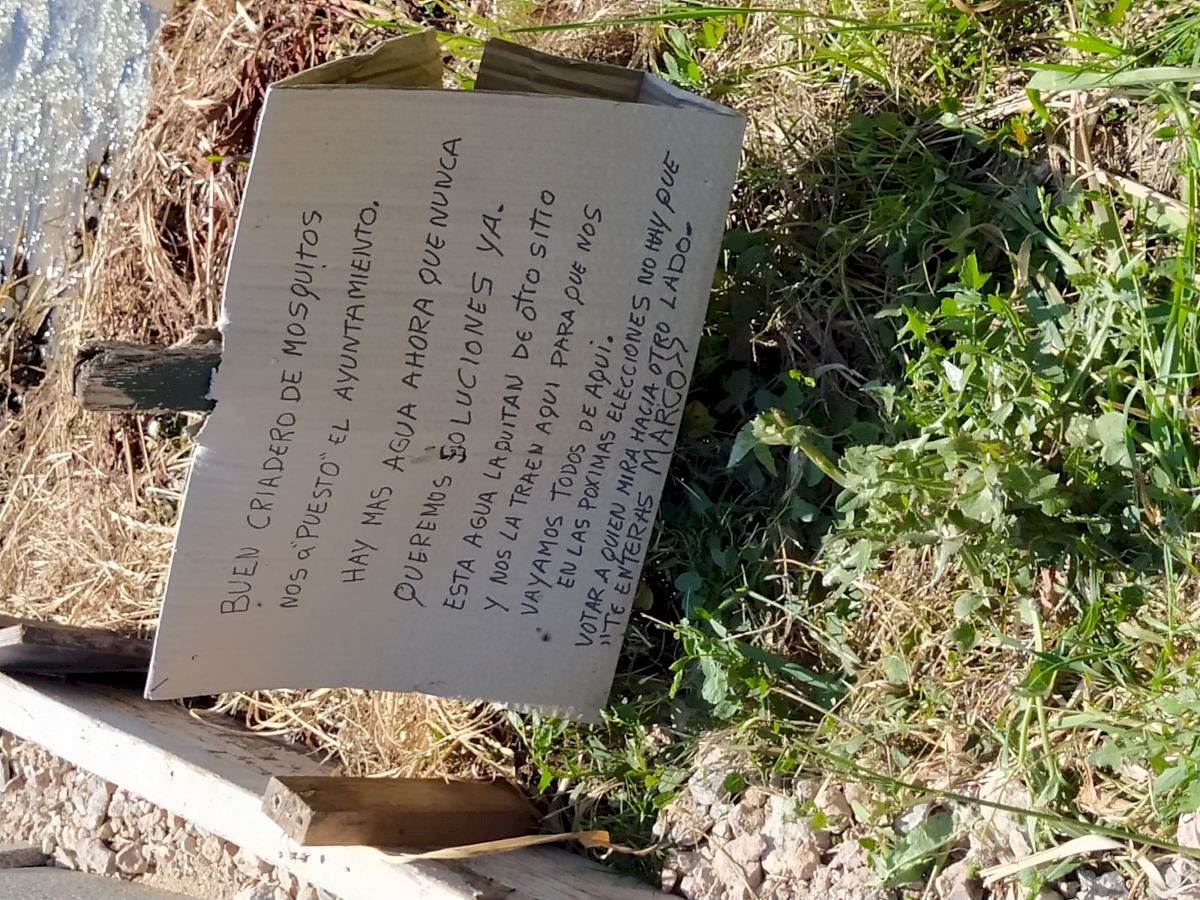 BUEN CRIADERO DE MOSQUITOS
NOS a "PUESTO" EL AYUNTAMIENTO.
HAY MAS AGUA AHORA QUE NUNCA
QUEREMOS SOLUCIONES YA.
ESTA AGUA LA QUITAN DE OTRO SITIO
Y NOS LA TRAEN AQUI PARA QUE NOS
VAYAMOS TODOS DE AQUI.
EN LAS POXIMAS ELECCIONES NO HAY QUE
VOTAR A QUIEN MIRA HACIA OTRO LADO.
"TE ENTERAS MARCOS"